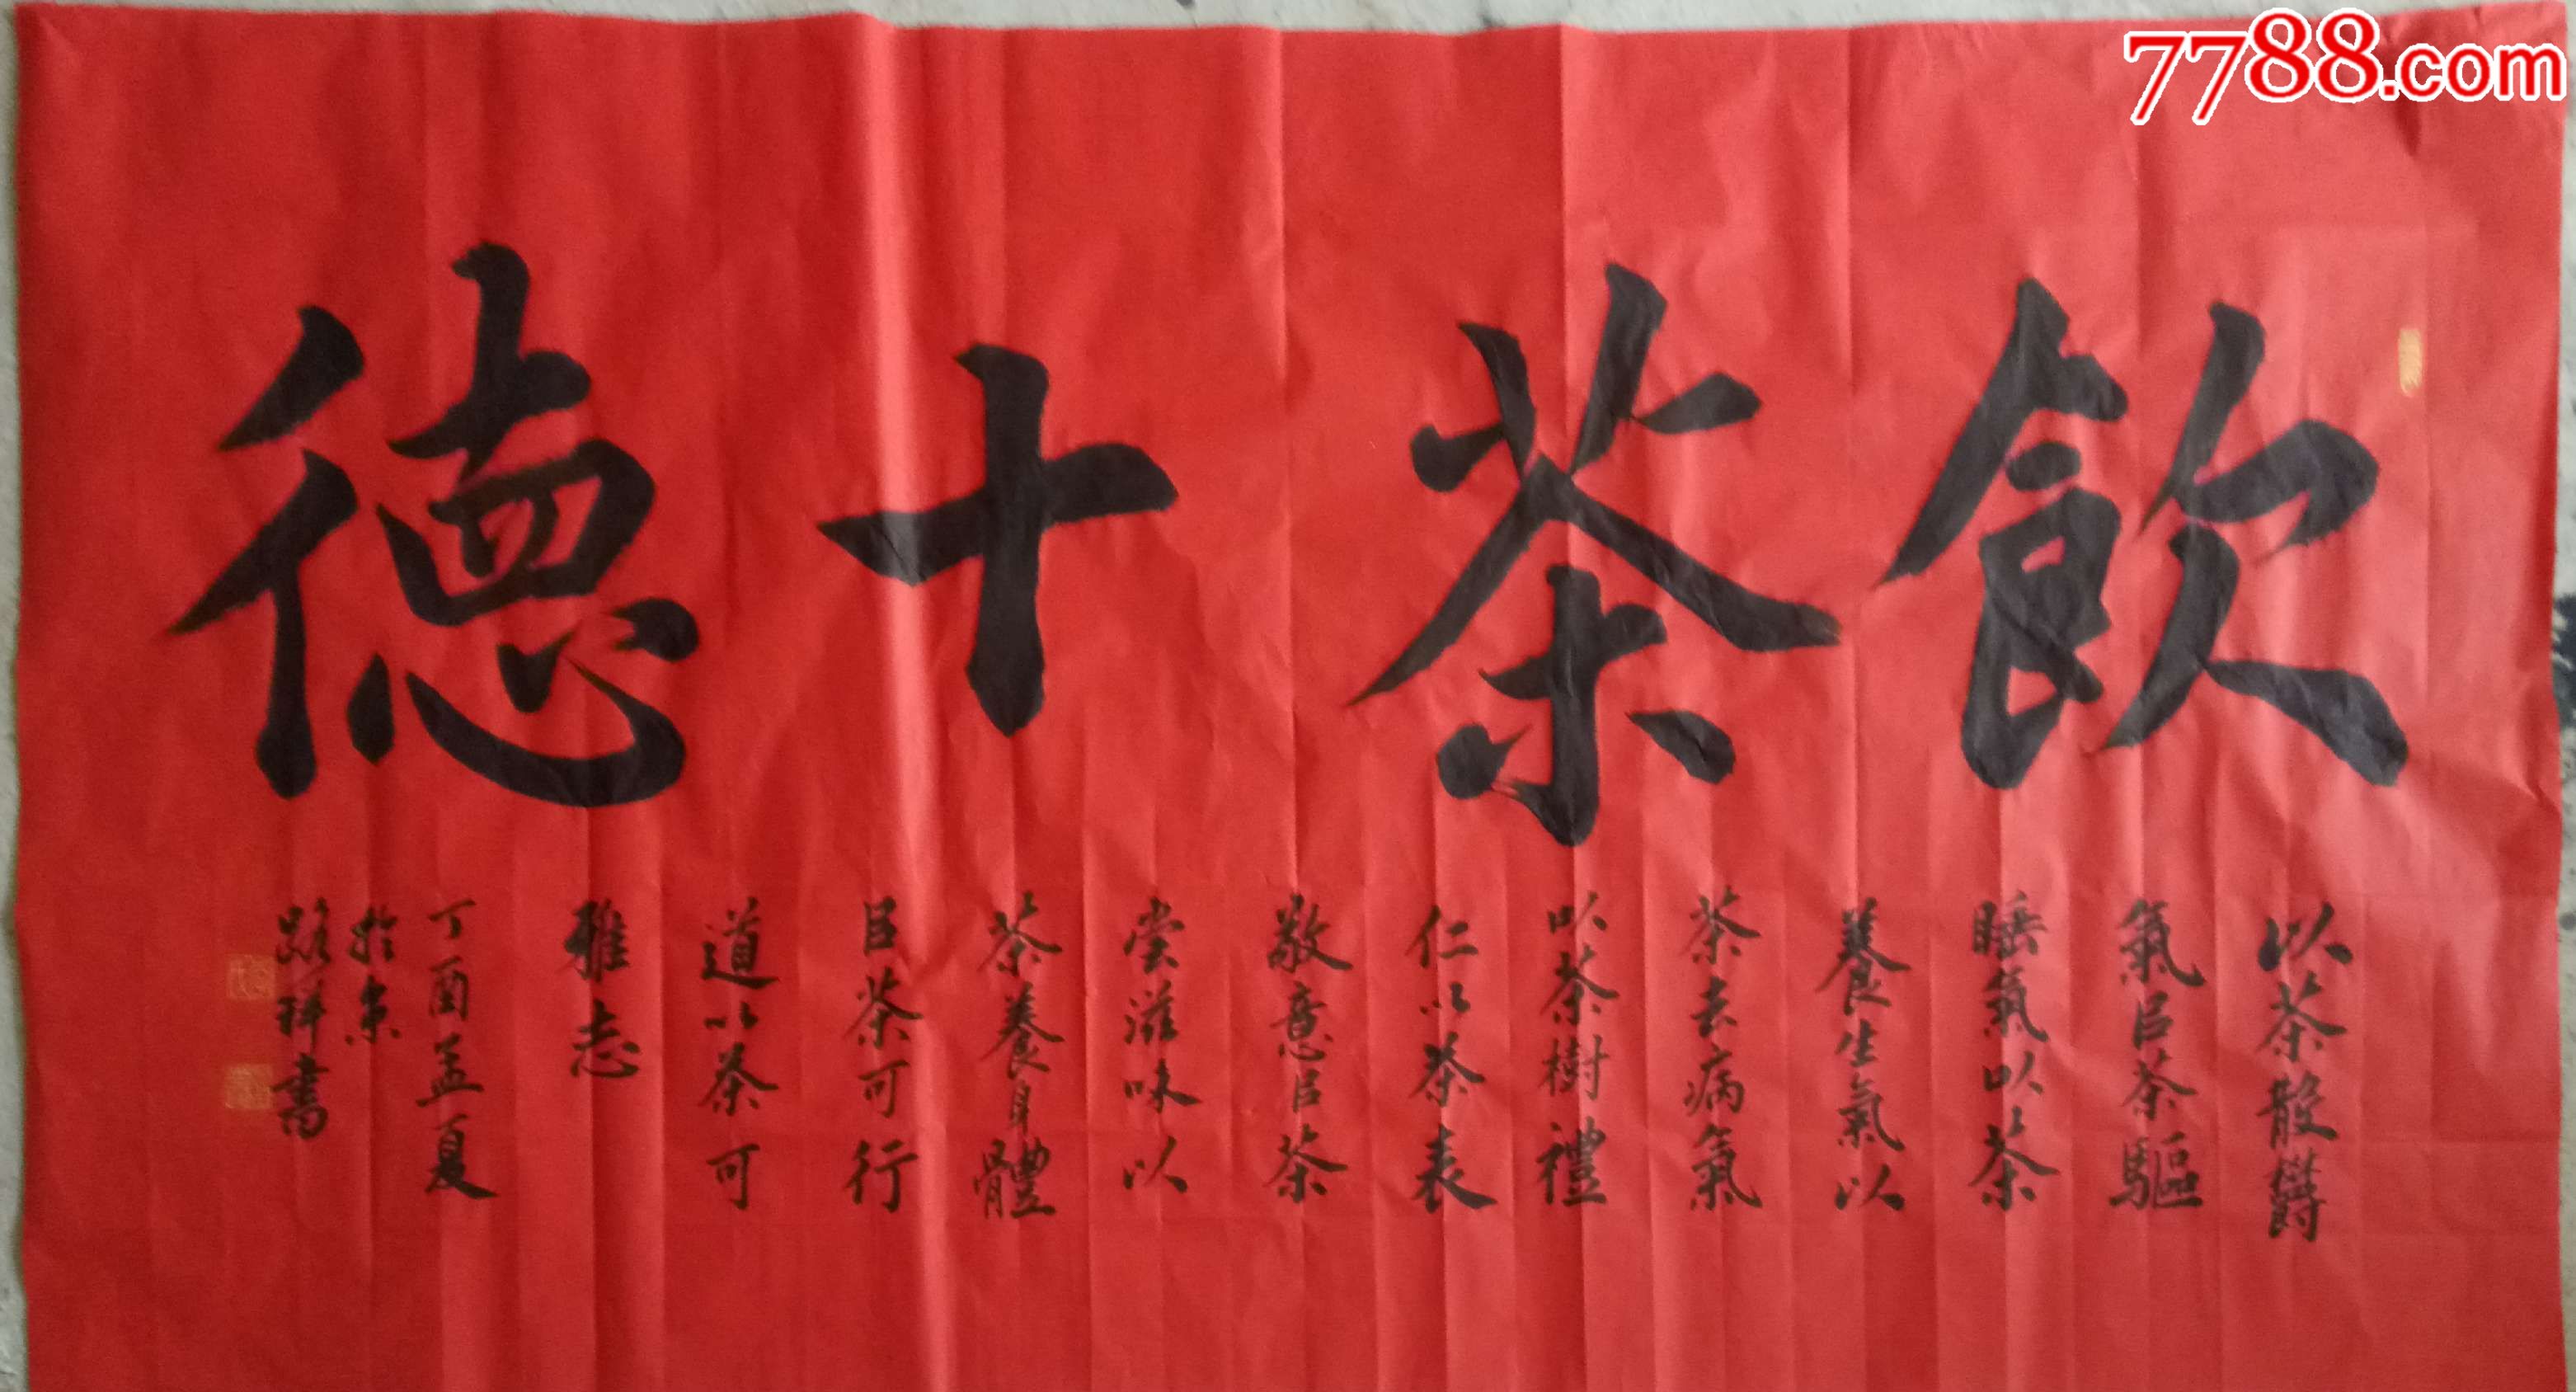 7788.com
飲茶十德
以茶散鬱
氣㠯茶驅
睡氣以茶
養生氣以
茶去病氣
以茶樹禮
仁以茶表
敬意㠯茶
嘗滋味以
茶養身體
㠯茶可行
道以茶可
雅志
丁酉孟夏
於京
路祥書